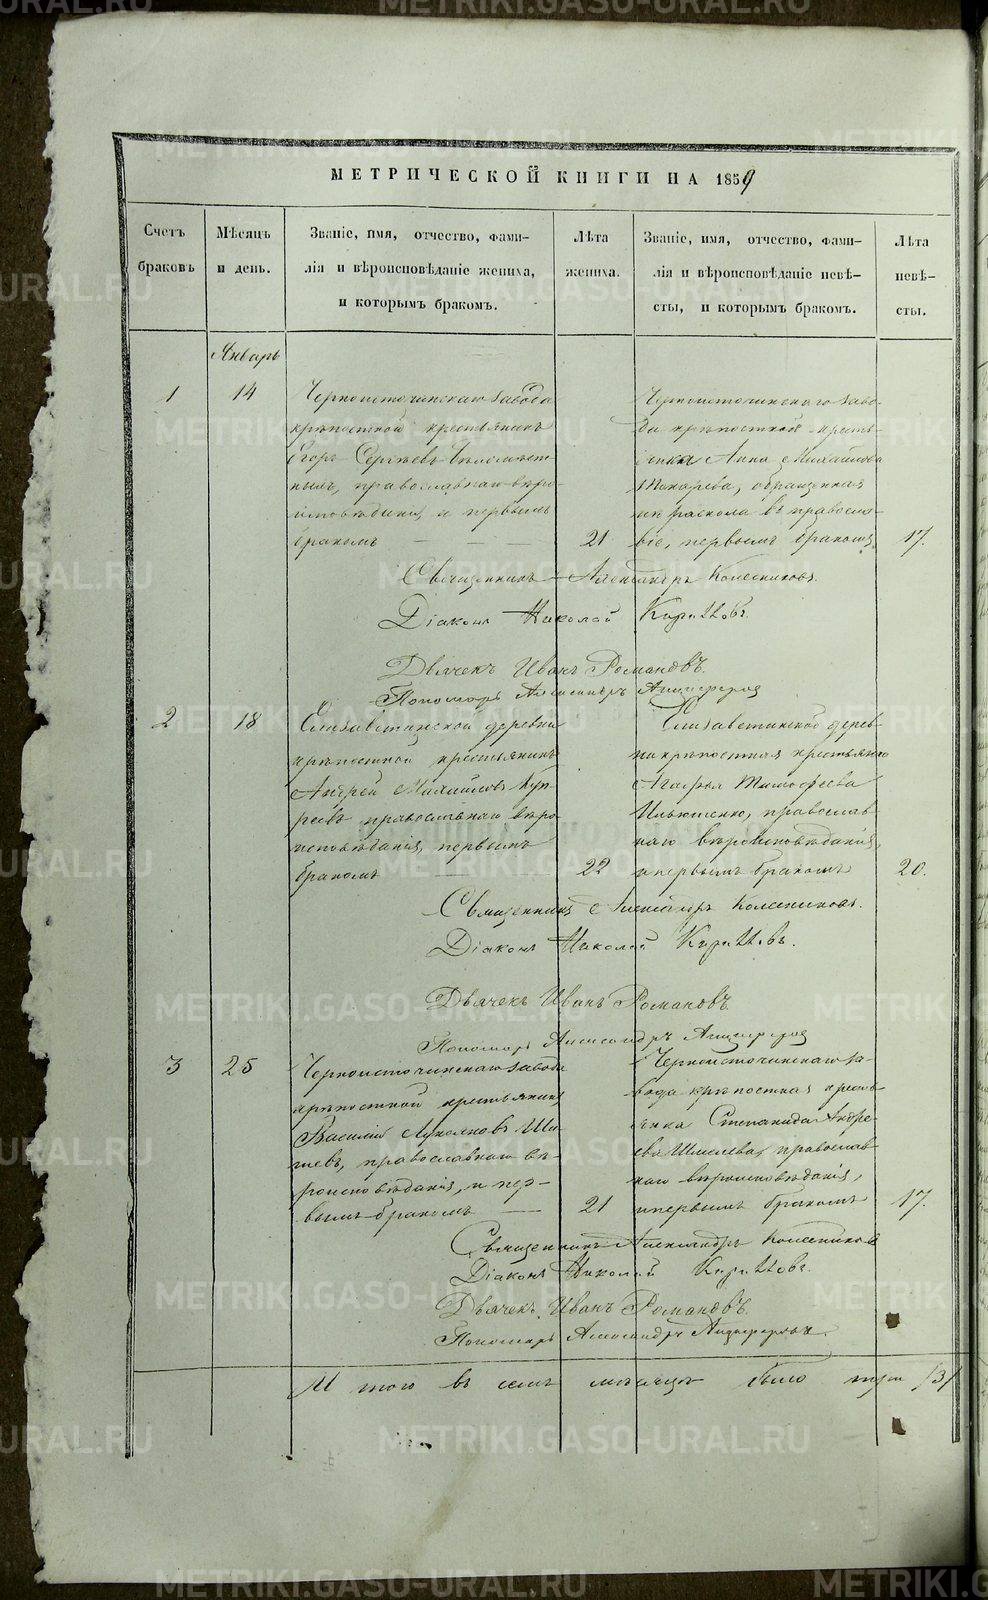 МЕТРИЧЕСКОЙ КНИГИ НА 1859
Счетъ браковъ
Мѣсяцъ и день.
Званіе, имя, отчество, фами-
лія и вѣроисповѣданіе жениха,
и которымъ бракомъ.
Лѣта жениха.
Званіе, имя, отчество, фами-
лія и вѣроисповѣданіе невѣ-
сты, и которымъ бракомъ.
Лѣта невѣ-
сты.
Январь
1
14
Черноисточинскаго завода
крѣпостной крестьянинъ
Егоръ Сергѣевъ
православнаго вѣро-
исповѣданія и первымъ
бракомъ
21
Черноисточинскаго заво-
да крѣпостной кресть-
янки Анна Михайлова
Токарева, обращенная
изъ раскола въ правосла-
віе, первымъ бракомъ
17.
Священникъ Александръ Колесниковъ.
Діаконъ Николай
Дьячекъ Иванъ Романовъ.
Пономарь Александръ
2
18
Елизаветинской деревни
крѣпостной крестьянинъ
Андрей Михайловъ
православнаго вѣро-
исповѣданія, первымъ
бракомъ
22
Елизаветинской дерев-
ни крѣпостная крестьянка
Агафья Тимофеева
православ-
наго вѣроисповѣданія,
и первымъ бракомъ
20.
Священникъ Александръ Колесниковъ.
Діаконъ Николай
Дьячекъ Иванъ Романовъ.
Пономарь Александръ
3
25
Черноисточинскаго завода
крѣпостной крестьянинъ
Василій
православнаго вѣ-
роисповѣданія, и пер-
вымъ бракомъ
21
Черноисточинскаго за-
вода крѣпостная кресть-
янка Степанида Андре-
ева Шмелева, православ-
наго вѣроисповѣданія,
и первымъ бракомъ
17.
Священникъ Александръ Колесниковъ
Діаконъ Николай
Дьячекъ Иванъ Романовъ.
Пономарь Александръ
Итого въ семъ мѣсяцѣ было три /3/
METRIKI.GASO-URAL.RU